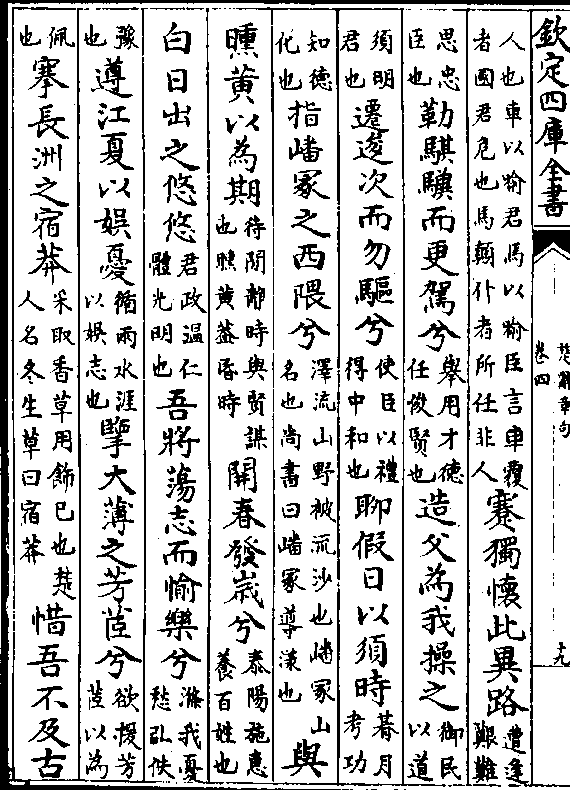 欽定四庫全書
楚辭章句
卷四
十九
人也車以喻君馬以喻臣言車覆者國君危也馬顛仆者所任非人蹇獨懷此異路遭逢艱難
思忠臣也勒騏驥而更駕兮舉用才德任俊賢也造父為我操之御民以道
須明君也遷逡次而勿驅兮使臣以禮得中和也聊假日以須時暮月考功
知德化也指嶓冢之西隈兮澤流山野被流沙也嶓冢山名也尚書曰嶓冢導漾也與
曛黃以為期待閒靜時與賢謀也曛黃蓋昏時開春發歲兮泰陽施惠養百姓也
白日出之悠悠君政溫仁體光明也吾將蕩志而愉樂兮滌我憂愁弘佚
豫也遵江夏以娛憂循兩水涯以娛志也擥大薄之芳茝兮欲援芳茝以為
佩也搴長洲之宿莽采取香草用飾已也楚人名冬生草曰宿莽惜吾不及古